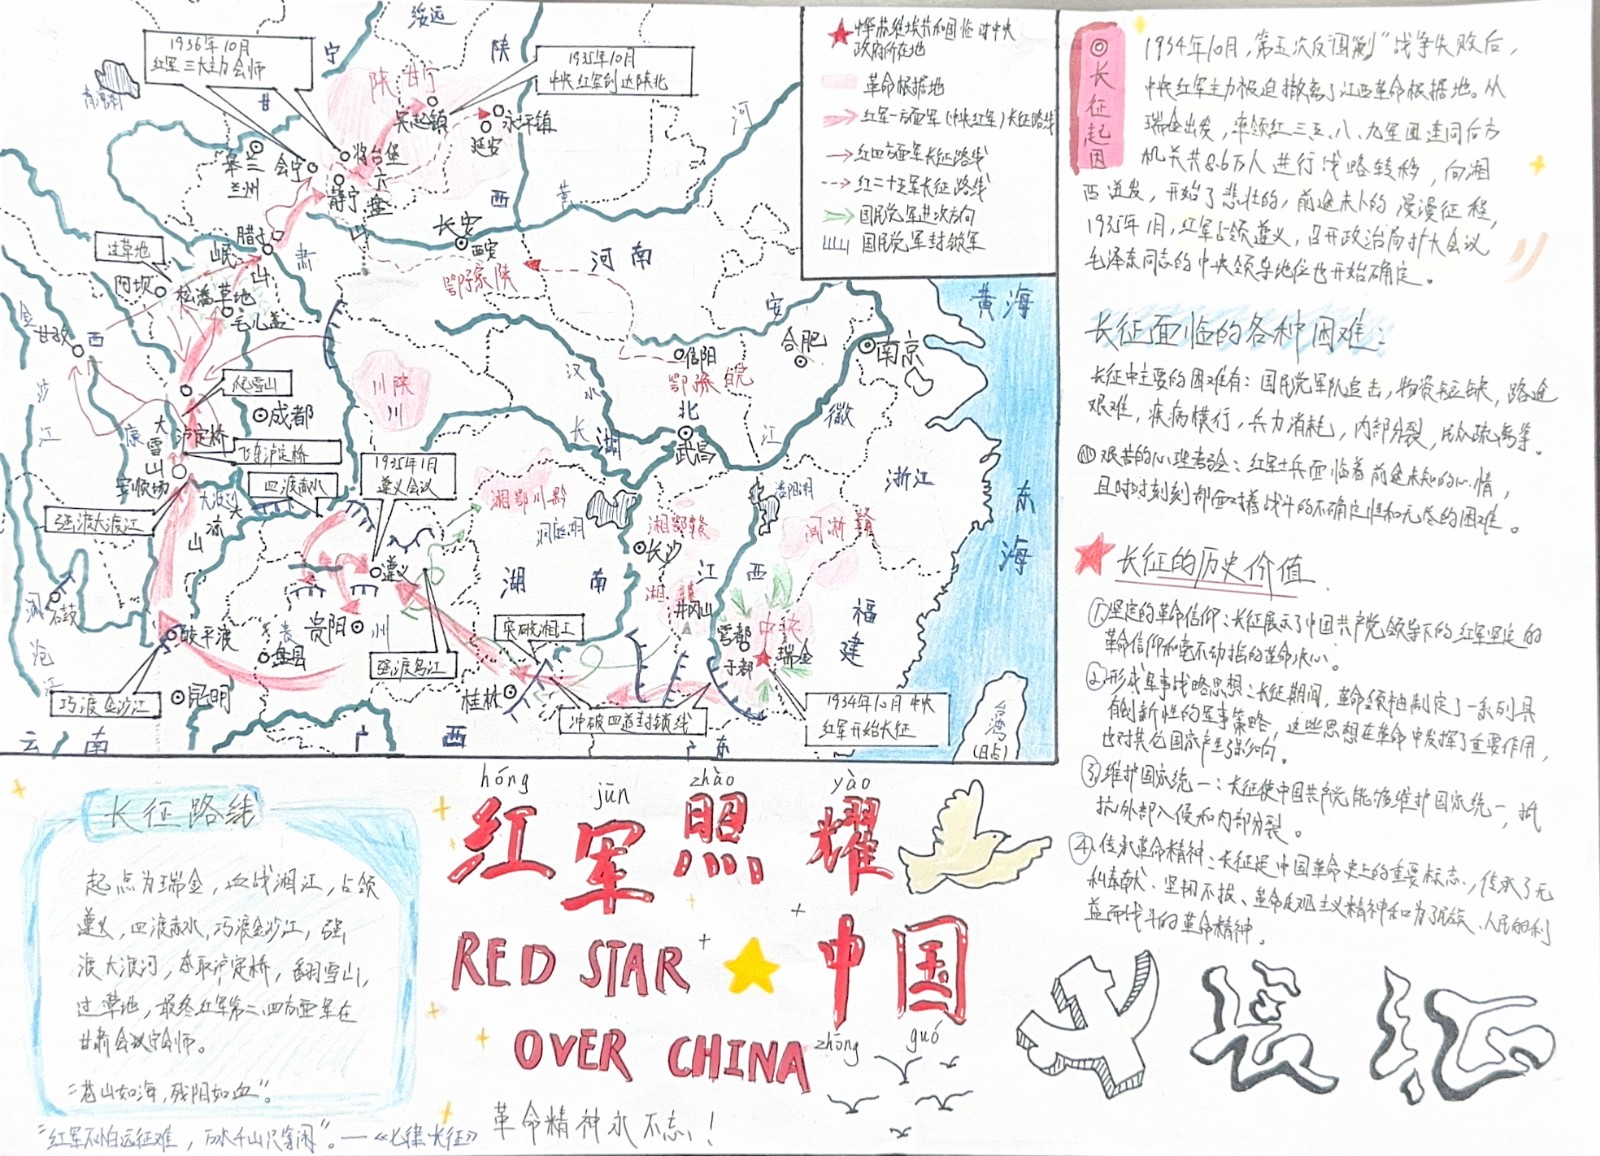 绥远
宁
陕
1936年10月
红军三大主力会师
1935年10月
中央红军到达陕北
青海湖
甘
陕甘
吴起镇
永坪镇
延安
河
皋兰
兰州
会宁
将台堡
静宁
六盘山
西
黄
长安
西安
过草地
腊子口
岷山
肃
河南
鄂豫陕
阿坝
松潘草地
毛儿盖
金沙江
甘孜
西
康
爬雪山
成都
川陕
川
汉水
信阳
鄂豫皖
安
徽
合肥
南京
湖
北
武昌
长
江
大雪山
泸定桥
飞夺泸定桥
安顺场
1935年1月
遵义会议
四渡赤水
强渡大渡江
凉山
湘鄂川黔
洞庭湖
湘鄂赣
闽浙赣
浙江
长沙
遵义
湖
南
江
西
井冈山
中央
雩都
于都
瑞金
福建
澜沧江
石鼓
皎平渡
贵
州
贵阳
盘县
强渡乌江
突破湘江
桂林
巧渡金沙江
昆明
冲破四道封锁线
1934年10月中央
红军开始长征
云南
广
西
广东
台湾
(日占)
黄海
东海
政府所在地
革命根据地
红军一方面军(中央红军)长征路线
红四方面军长征路线
红二十五军长征路线
国民党军进攻方向
国民党军封锁军
长征起因
1934年10月,第五次反“围剿”战争失败后,
中央红军主力被迫撤离了江西革命根据地。从
瑞金出发,率领红一三五、八、九军团连同后方
机关共8.6万人进行战略转移,向湘
西进发,开始了悲壮的,前途未卜的漫漫征程,
1935年1月,红军占领遵义,召开政治局扩大会议
毛泽东同志的中央领导地位也开始确定。
长征面临的各种困难:
长征中主要的困难有:国民党军队追击,物资短缺,路途
艰难,疾病横行,兵力消耗,内部分裂,民众疏离等。
艰苦的心理考验:红军士兵面临着前途未知的心情,
且时时刻刻都面对着战斗的不确定性和无尽的困难。
长征的历史价值
①坚定的革命信仰:长征展示了中国共产党领导下的红军坚定的
革命信仰和毫不动摇的革命决心。
②形成军事战略思想:长征期间,革命领袖制定了一系列具
有创新性的军事策略,这些思想在革命中发挥了重要作用,
也对其他国家产生了影响。
③维护国家统一:长征使中国共产党能够维护国家统一,抵
抗外部入侵和内部分裂。
④传承革命精神:长征是中国革命史上的重要标志,传承了无
私奉献、坚韧不拔、革命乐观主义精神和为了民族、人民的利
益而战斗的革命精神。
长征路线
起点为瑞金,血战湘江,占领
遵义,四渡赤水,巧渡金沙江,强
渡大渡河,夺取泸定桥,翻雪山,
过草地,最终红军第一二、四方面军在
甘肃会议宁会师。
“苍山如海,残阳如血”。
“红军不怕远征难,万水千山只等闲”。—《七律·长征》
hóng jūn zhào yào
红军照耀
RED STAR
中国
zhōng guó
OVER CHINA
革命精神永不忘!
长征